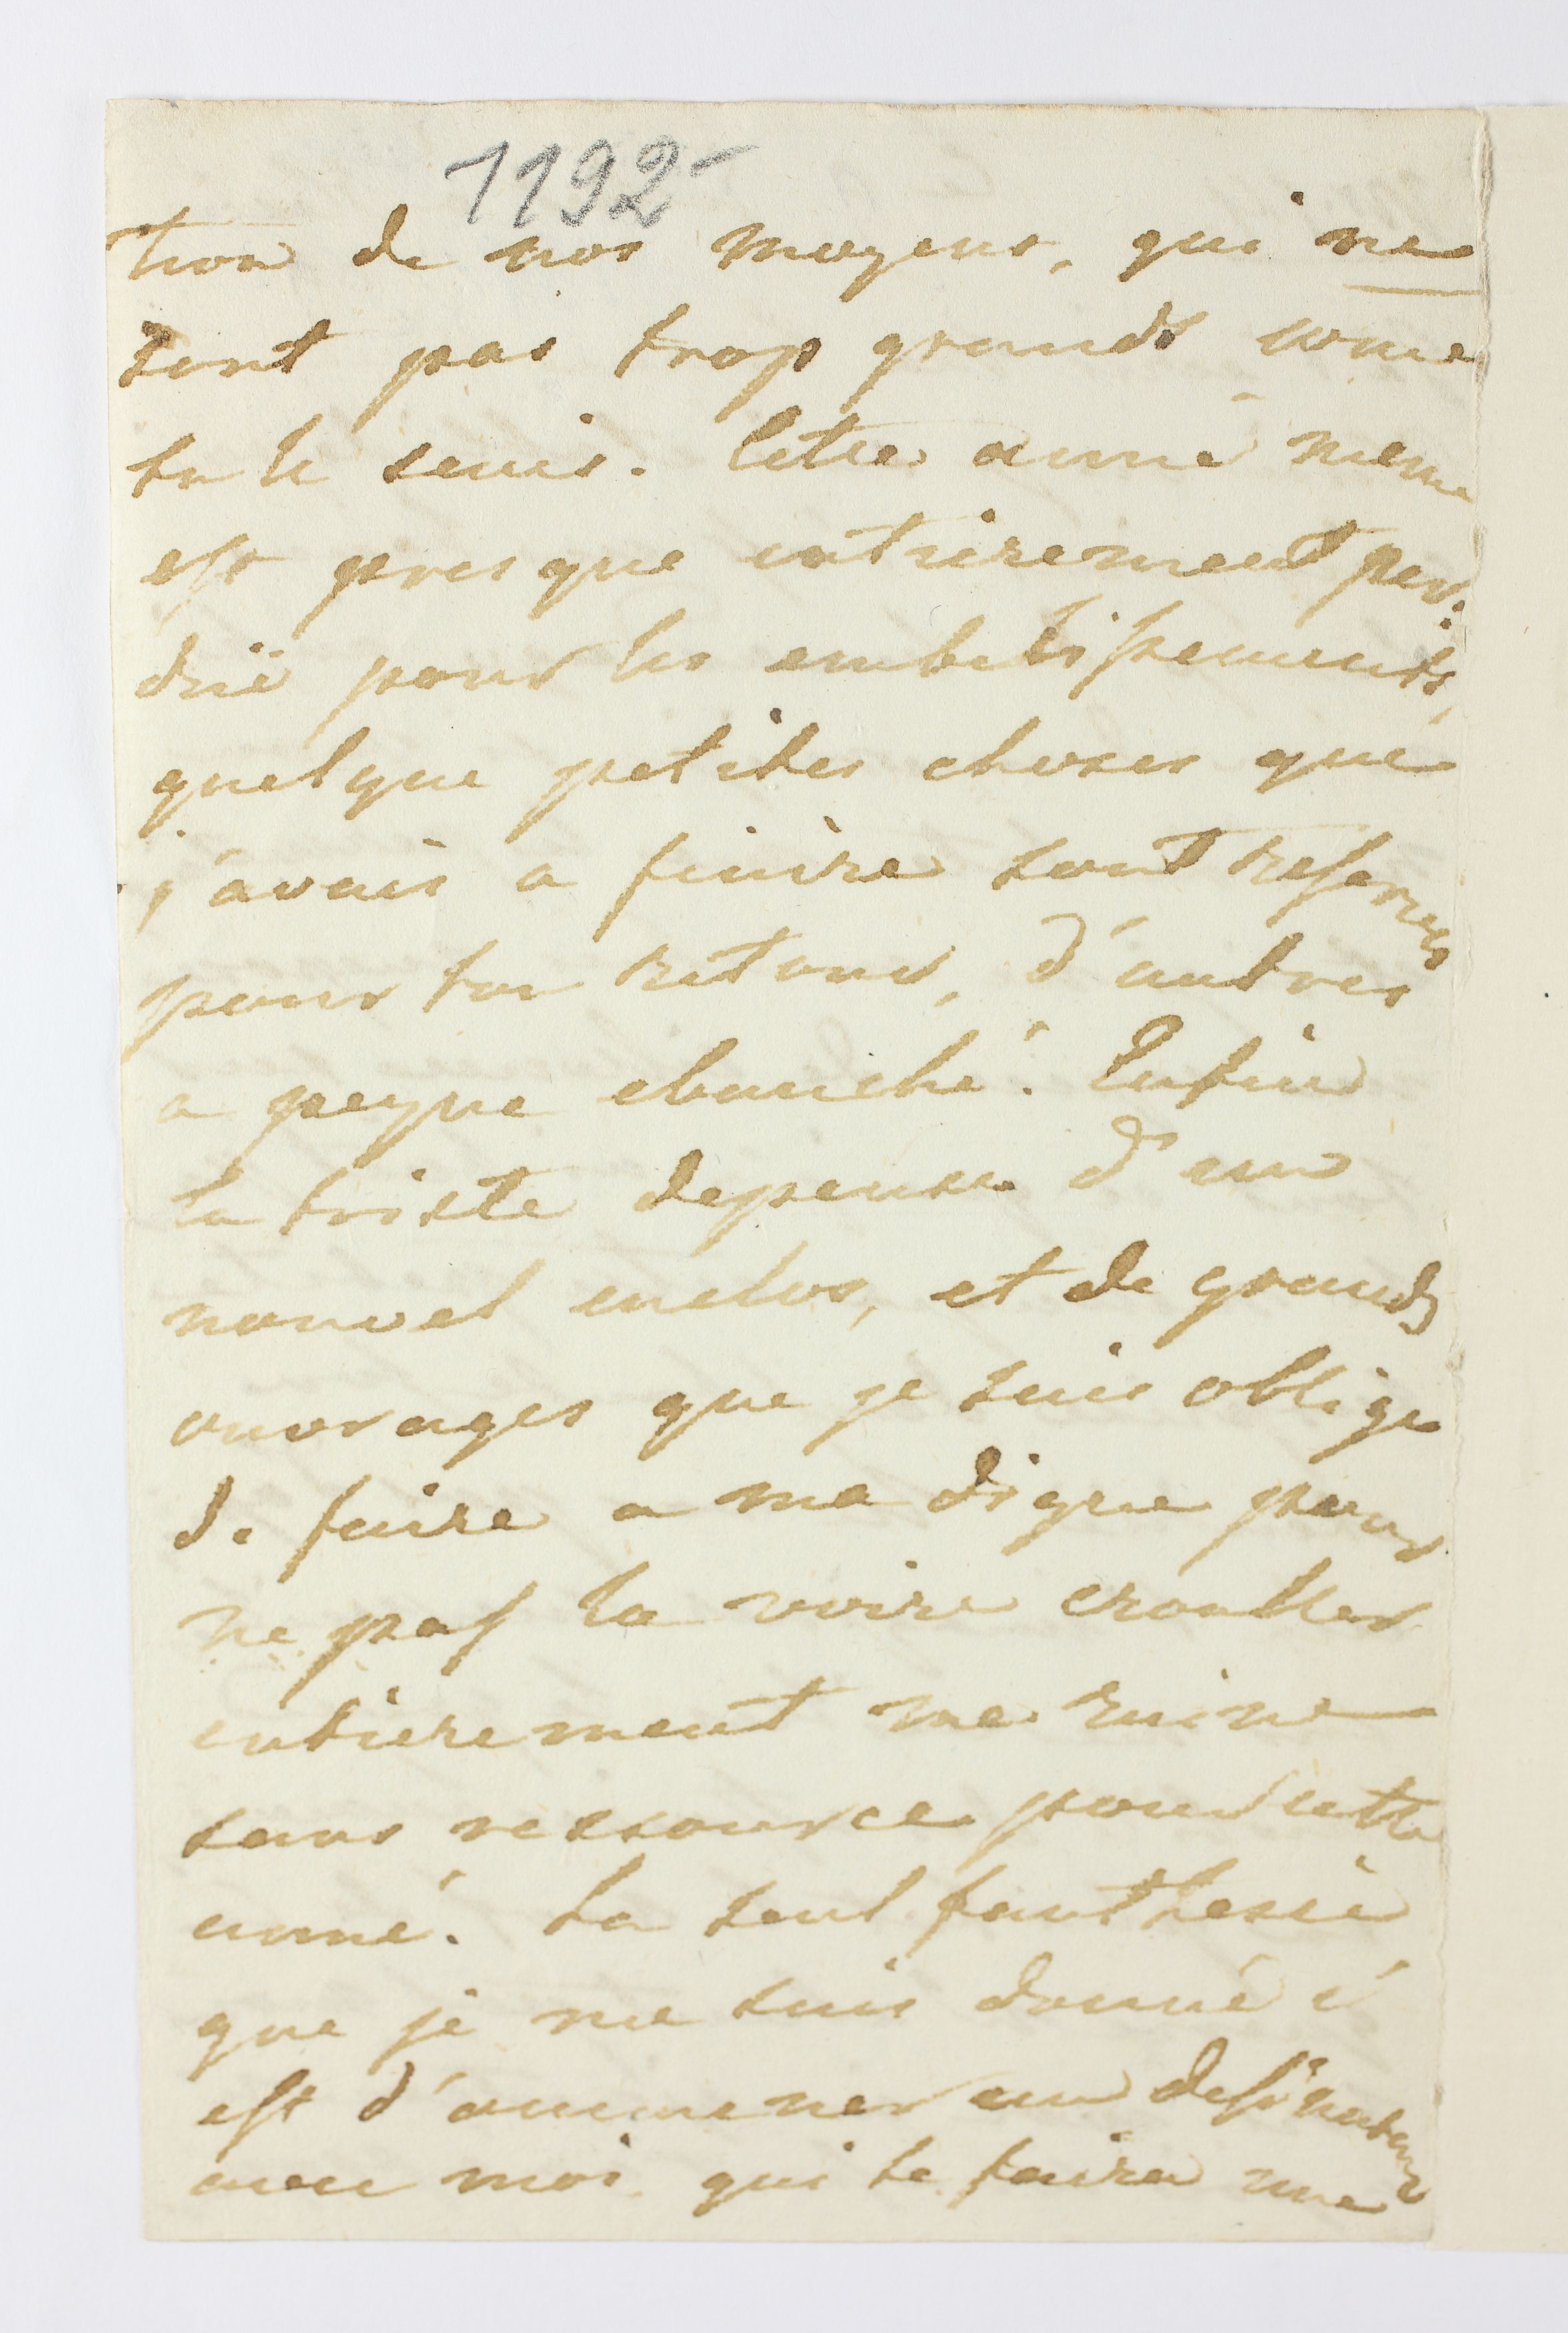 1192
tion de nos moyens, qui ne
sont pas trop grands come
tu le sais. Cette anné meme
est presque entierement per:
düe pour les embelissements,
quelque petites choses que
j'avais a finire sont reservés
pour ton retour, d'autres
a peyne ebauché. Enfin
la triste depense d'un
nouvel enclos, et de grands
ouvrages que je suis oblige
de faire a ma digue pour
ne pas la voire crouller
entierement me ruine
sans ressource pour cette
anné. La seul fanthesie
que je me suis donné c'
est d'ammener un dessinateur
avec moi qui te faira une